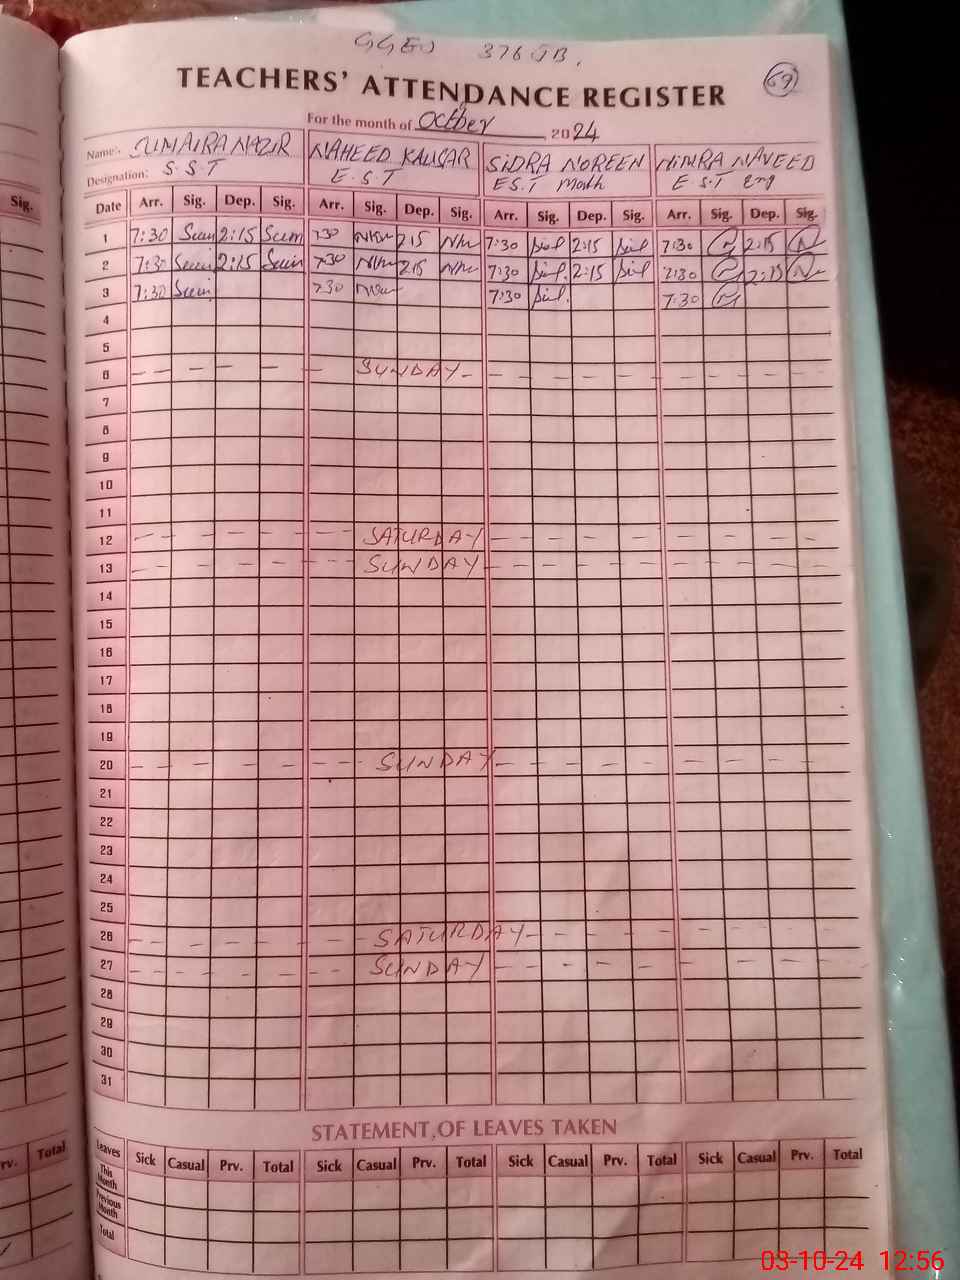 376 JB.
TEACHERS' ATTENDANCE REGISTER
69
For the month of October 2024
Name: SUMAIRA NAZIR NAHEED KAUSAR SIDRA NOREEN NIMRA NAVEED
Designation: S.S.T E.S.T E.S.T Math E.S.T Eng
Sig.
Date Arr. Sig. Dep. Sig. Arr. Sig. Dep. Sig. Arr. Sig. Dep. Sig. Arr. Sig. Dep. Sig.
1 7:30 2:15 730 215 7:30 2:15 7:30 2:15
2 7:30 2:15 730 215 7:30 2:15 7:30 2:15
3 7:30 730 7:30 7:30
4
5
6 SUNDAY
7
8
9
10
11
12 SATURDAY
13 SUNDAY
14
15
16
17
18
19
20 SUNDAY
21
22
23
24
25
26 SATURDAY
27 SUNDAY
28
29
30
31
STATEMENT OF LEAVES TAKEN
Prv. Total
Leaves Sick Casual Prv. Total Sick Casual Prv. Total Sick Casual Prv. Total Sick Casual Prv. Total
This Month
Previous Month
Total
03-10-24 12:56